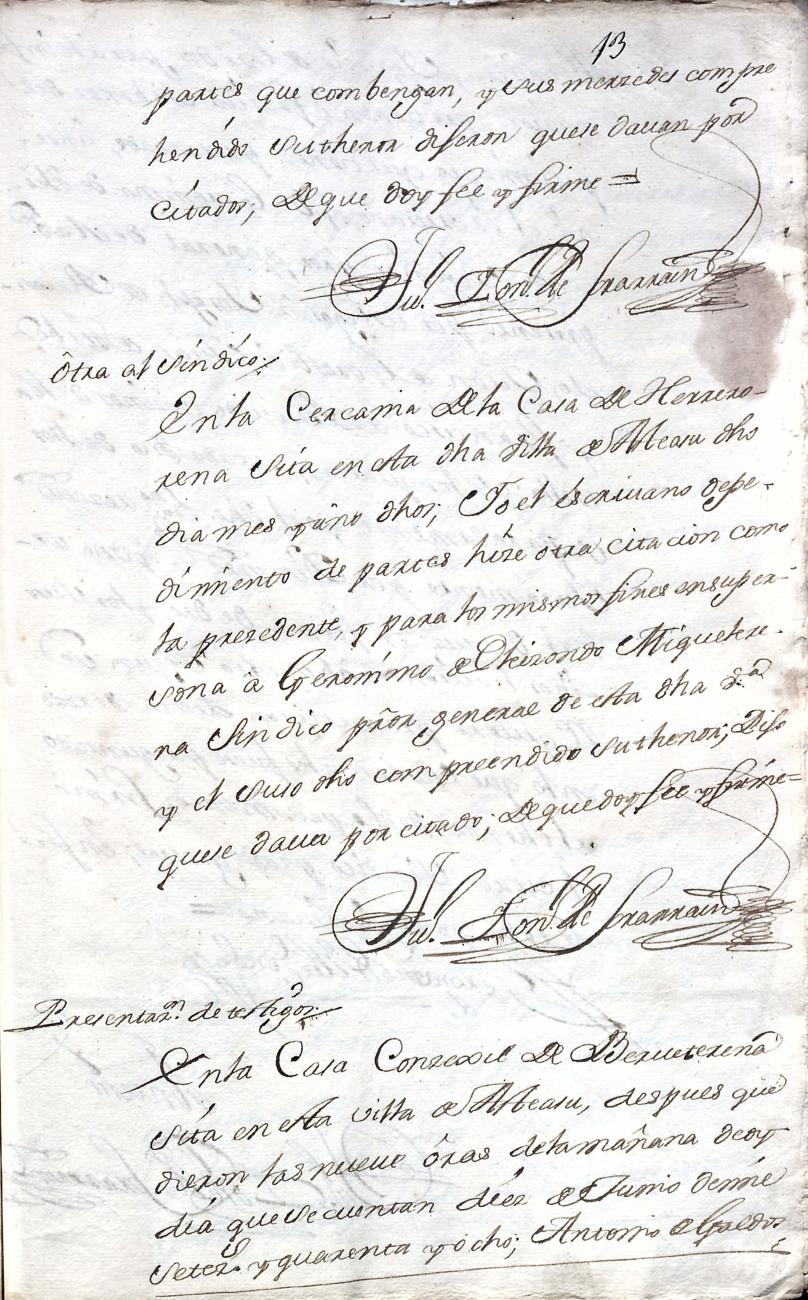 13
partes que combengan, y sus merzedes compre
hendido suthenor dijeron quese dauan por
Citados, De que doy fee y firme =
Ju.º Lon. de Yrarrain
Otra al Sindico.
En la Cercania Dela Casa De Herrero-
rena sita en esta dha Villa de Ateasu dho
dia mes y año dhos; Yo el escriuano depe-
dimiento de partes hize otra citacion como
la prezedente, y para los mismos fines ensuper-
sona a Geronimo de Oleizondo Miquelere-
na Sindico prõr general de esta dha V.ª
y el suso dho compreendido suthenor; Dijo
quese daua por citado; De quedoy fee y firme=
Ju.º Lon. de Yrarrain
Presentaz.n de testigos.
En la Casa Conzexil De Berueterena
sita en esta villa de Ateasu, despues que
dieron las nueve oras dela mañana deoy
dia que se cuentan diez de Junio de mil
setez.s y quarenta y ocho; Antonio de Galdos